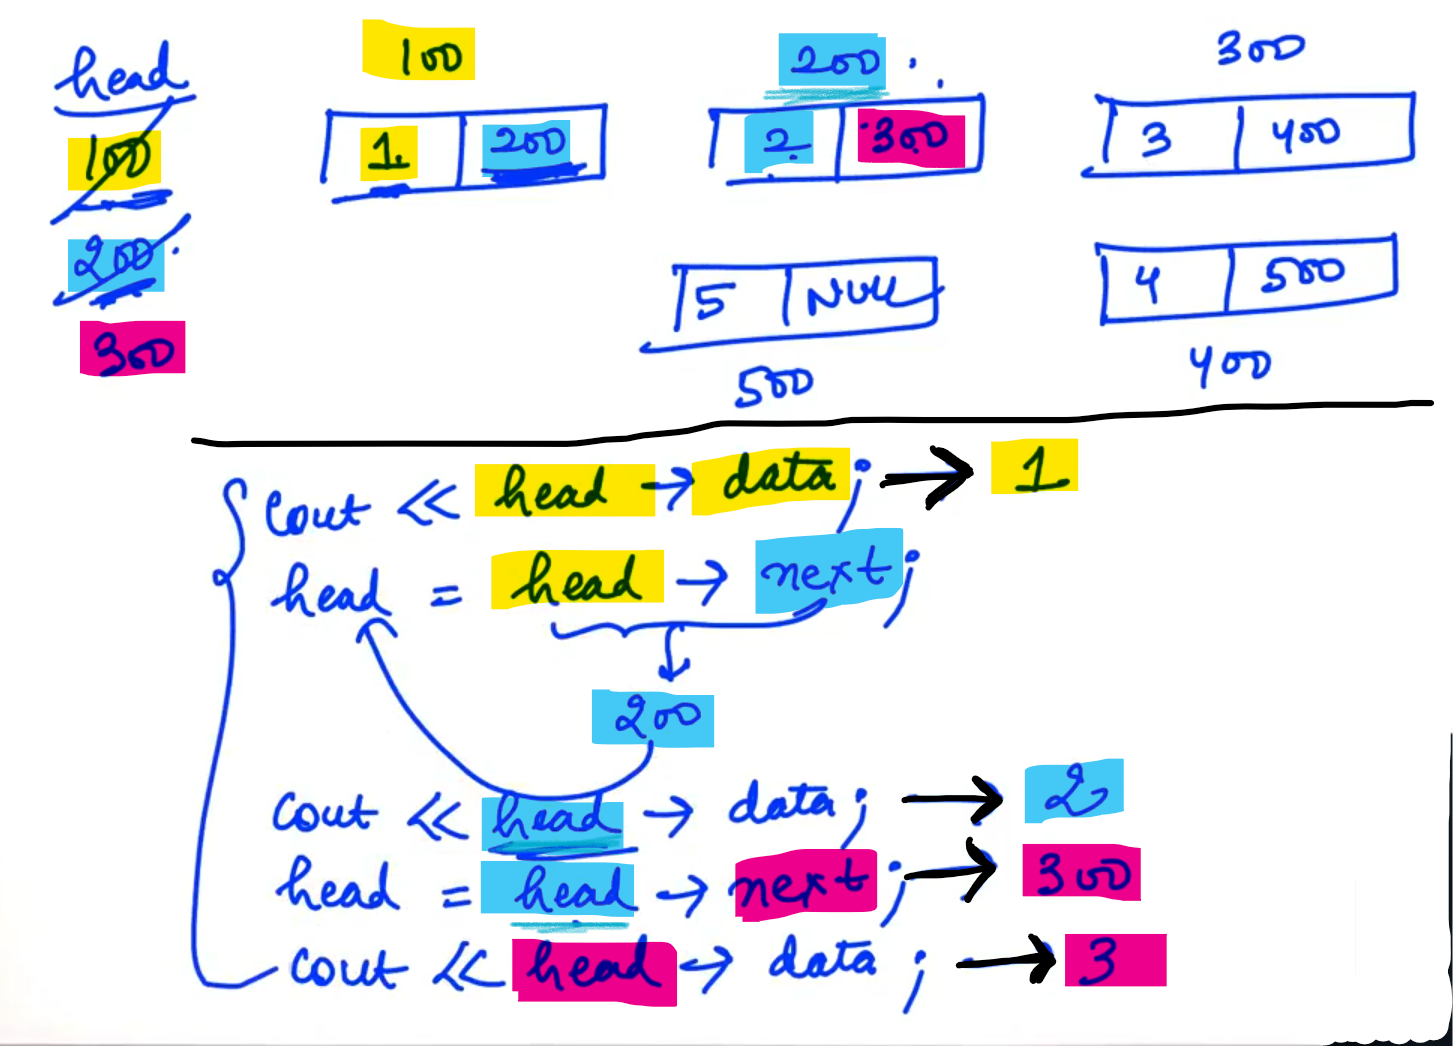 head
100
200
300
100
1. 200
200
2. 300
300
3 400
5 NULL
500
4 500
400
cout << head → data; → 1
head = head → next;
200
cout << head → data; → 2
head = head → next; → 300
cout << head → data; → 3